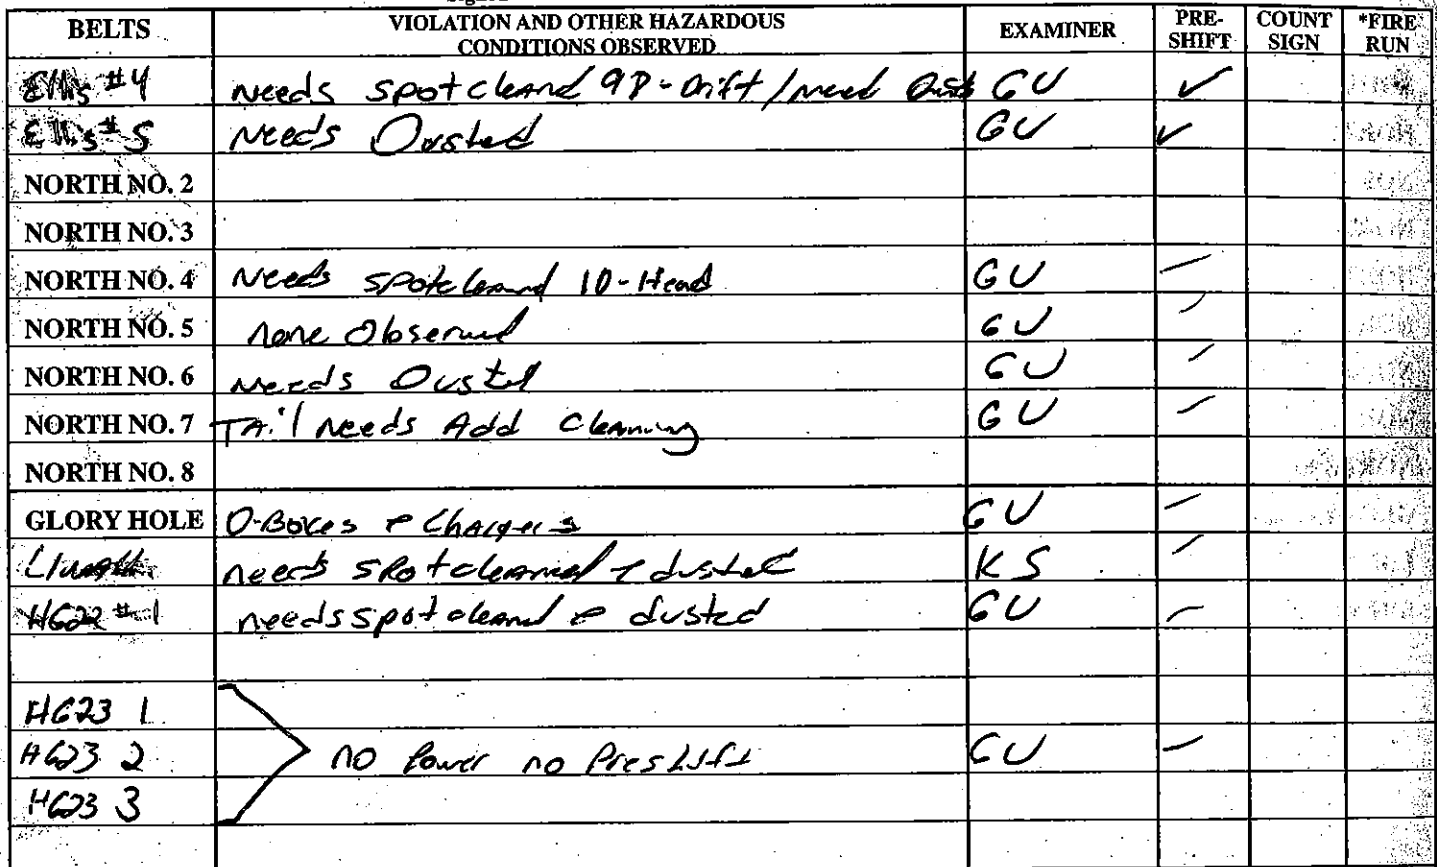 BELTS VIOLATION AND OTHER HAZARDOUS CONDITIONS OBSERVED EXAMINER PRE-SHIFT COUNT SIGN *FIRE RUN
Ellis #4 Needs Spot cleand 9D-Drift / need GU ✓
Ellis #5 Needs Dusted GU ✓
NORTH NO. 2
NORTH NO. 3
NORTH NO. 4 Needs Spot cleand 10-Head GU
NORTH NO. 5 none Observed GU
NORTH NO. 6 Needs Dusted GU
NORTH NO. 7 TAil Needs Add Cleaning GU
NORTH NO. 8
GLORY HOLE O-Boxes & Chargers GU
needs Spot cleaned & dusted KS
HG22 #1 needs spot cleand & dusted GU
HG23 1
HG23 2 no Power no Preshift GU
HG23 3